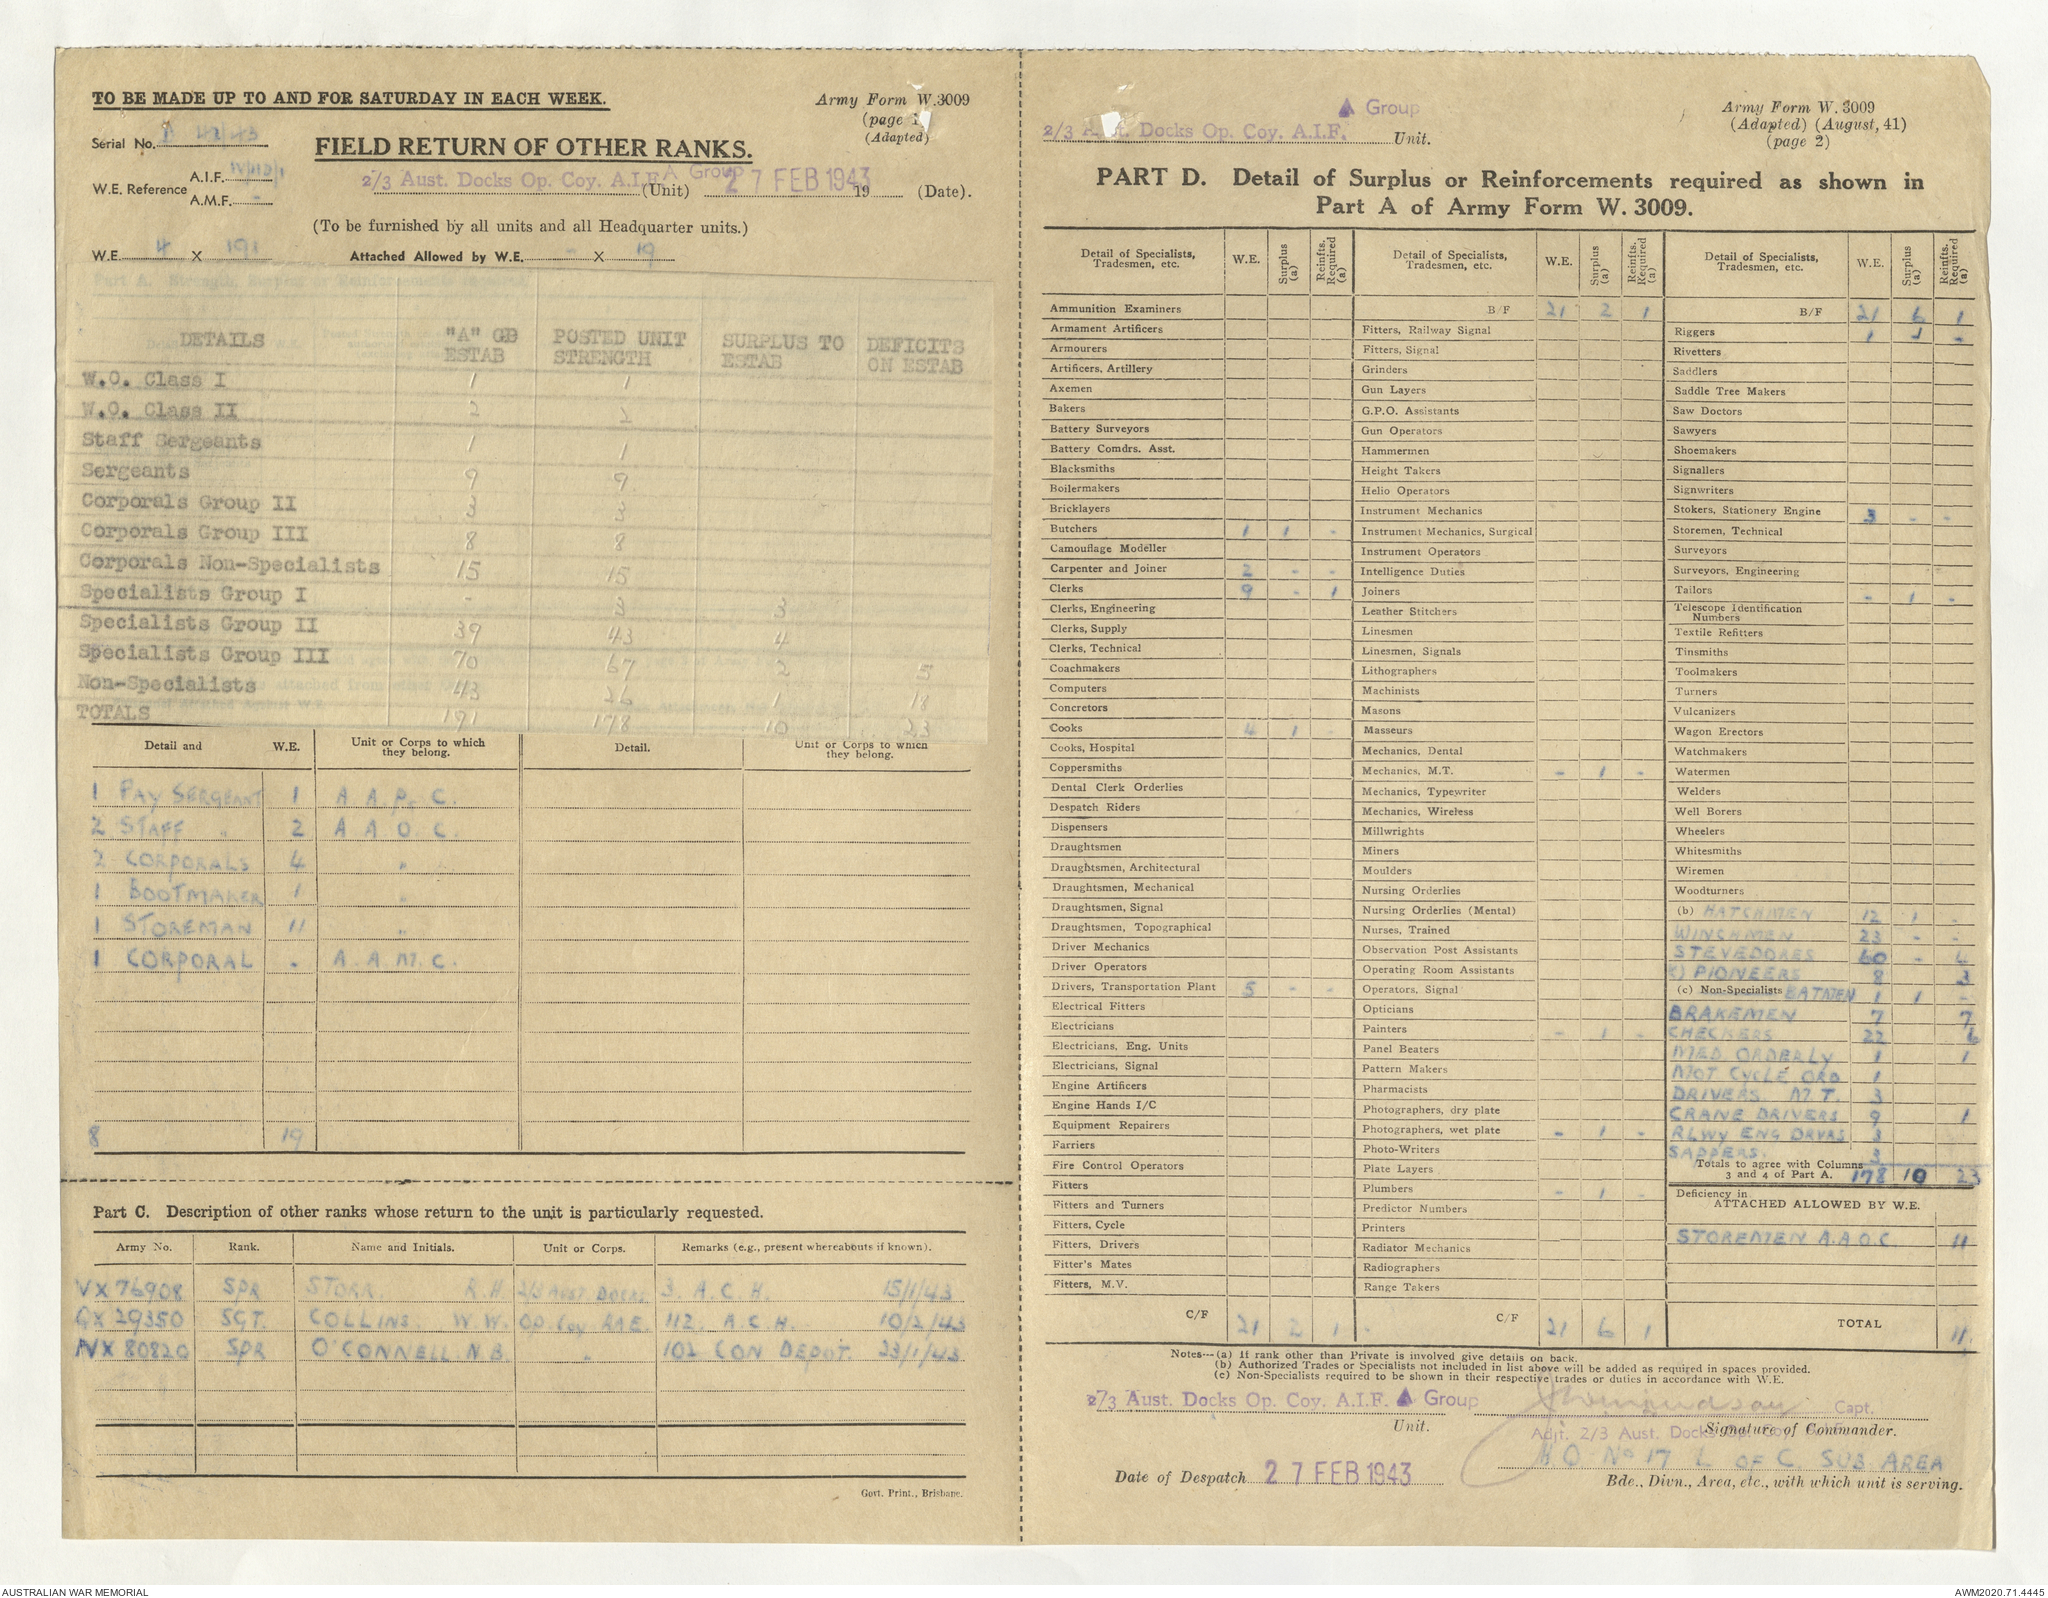 TO BE MADE UP TO AND FOR SATURDAY IN EACH WEEK.
Army Form W.3009
(page 1
(Adapted)
Serial No.
FIELD RETURN OF OTHER RANKS.
W.E. Reference A.I.F.
A.M.F. -
2/3 Aust. Docks Op. Coy. A.I.F. A Group (Unit) 27 FEB 1943 19 (Date).
(To be furnished by all units and all Headquarter units.)
W.E. 4 X 191 Attached Allowed by W.E. - X 19
DETAILS "A" GP ESTAB POSTED UNIT STRENGTH SURPLUS TO ESTAB DEFICITS ON ESTAB
W.O. Class I 1 1
W.O. Class II 2 2
Staff Sergeants 1 1
Sergeants 9 9
Corporals Group II 3 3
Corporals Group III 8 8
Corporals Non-Specialists 15 15
Specialists Group I - 3 3
Specialists Group II 39 43 4
Specialists Group III 70 67 2 5
Non-Specialists 43 26 1 18
TOTALS 191 178 10 23
Detail and W.E. Unit or Corps to which they belong. Detail. Unit or Corps to which they belong.
1 PAY SERGEANT 1 A A P. C.
2 STAFF " 2 A A O C.
2 CORPORALS 4 "
1 BOOTMAKER 1 "
1 STOREMAN 11 "
1 CORPORAL - A. A. M. C.
8 19
Part C. Description of other ranks whose return to the unit is particularly requested.
Army No. Rank. Name and Initials. Unit or Corps. Remarks (e.g., present whereabouts if known).
VX 76908 SPR STORR. R.H. 2/3 AUST DOCKS 3. A.C.H. 15/1/43
QX 29350 SGT. COLLINS. W.W. OP. COY R.A.E. 112. A.C.H. 10/2/43
NX 80820 SPR O'CONNELL N.B. " 102 CON DEPOT. 23/1/43
Govt. Print., Brisbane.
A Group
2/3 Aust. Docks Op. Coy. A.I.F. Unit.
Army Form W. 3009
(Adapted) (August, 41)
(page 2)
PART D. Detail of Surplus or Reinforcements required as shown in
Part A of Army Form W. 3009.
Detail of Specialists, Tradesmen, etc. W.E. Surplus (a) Reinfts. Required (a)
Ammunition Examiners
Armament Artificers
Armourers
Artificers, Artillery
Axemen
Bakers
Battery Surveyors
Battery Comdrs. Asst.
Blacksmiths
Boilermakers
Bricklayers
Butchers 1 1 -
Camouflage Modeller
Carpenter and Joiner 2 - -
Clerks 9 - 1
Clerks, Engineering
Clerks, Supply
Clerks, Technical
Coachmakers
Computers
Concretors
Cooks 4 1 -
Cooks, Hospital
Coppersmiths
Dental Clerk Orderlies
Despatch Riders
Dispensers
Draughtsmen
Draughtsmen, Architectural
Draughtsmen, Mechanical
Draughtsmen, Signal
Draughtsmen, Topographical
Driver Mechanics
Driver Operators
Drivers, Transportation Plant 5 - -
Electrical Fitters
Electricians
Electricians, Eng. Units
Electricians, Signal
Engine Artificers
Engine Hands I/C
Equipment Repairers
Farriers
Fire Control Operators
Fitters
Fitters and Turners
Fitters, Cycle
Fitters, Drivers
Fitter's Mates
Fitters, M.V.
C/F 21 2 1
Detail of Specialists, Tradesmen, etc. W.E. Surplus (a) Reinfts. Required (a)
B/F 21 2 1
Fitters, Railway Signal
Fitters, Signal
Grinders
Gun Layers
G.P.O. Assistants
Gun Operators
Hammermen
Height Takers
Helio Operators
Instrument Mechanics
Instrument Mechanics, Surgical
Instrument Operators
Intelligence Duties
Joiners
Leather Stitchers
Linesmen
Linesmen, Signals
Lithographers
Machinists
Masons
Masseurs
Mechanics, Dental
Mechanics, M.T. - 1 -
Mechanics, Typewriter
Mechanics, Wireless
Millwrights
Miners
Moulders
Nursing Orderlies
Nursing Orderlies (Mental)
Nurses, Trained
Observation Post Assistants
Operating Room Assistants
Operators, Signal
Opticians
Painters - 1 -
Panel Beaters
Pattern Makers
Pharmacists
Photographers, dry plate
Photographers, wet plate - 1 -
Photo-Writers
Plate Layers
Plumbers - 1 -
Predictor Numbers
Printers
Radiator Mechanics
Radiographers
Range Takers
C/F 21 6 1
Detail of Specialists, Tradesmen, etc. W.E. Surplus (a) Reinfts. Required (a)
B/F 21 6 1
Riggers 1 1 -
Rivetters
Saddlers
Saddle Tree Makers
Saw Doctors
Sawyers
Shoemakers
Signallers
Signwriters
Stokers, Stationery Engine 3 - -
Storemen, Technical
Surveyors
Surveyors, Engineering
Tailors - 1 -
Telescope Identification Numbers
Textile Refitters
Tinsmiths
Toolmakers
Turners
Vulcanizers
Wagon Erectors
Watchmakers
Watermen
Welders
Well Borers
Wheelers
Whitesmiths
Wiremen
Woodturners
(b) HATCHMEN 12 1 -
WINCHMEN 23 - -
STEVEDORES 60 - 4
PIONEERS 8 3
(c) Non-Specialists BATMEN 1 1 -
BRAKEMEN 7 7
CHECKERS 22 6
MED. ORDERLY 1 1
MOT CYCLE ORD 1
DRIVERS. M.T. 3
CRANE DRIVERS 9 1
RLWY ENG DRVRS 3
SAPPERS. 3
Totals to agree with Columns
3 and 4 of Part A. 178 10 23
Deficiency in
ATTACHED ALLOWED BY W.E.
STOREMEN A.A.O.C 11
TOTAL 11
Notes---(a) If rank other than Private is involved give details on back.
(b) Authorized Trades or Specialists not included in list above will be added as required in spaces provided.
(c) Non-Specialists required to be shown in their respective trades or duties in accordance with W.E.
2/3 Aust. Docks Op. Coy. A.I.F. A Group Capt.
Unit. Signature of Commander.
Adjt. 2/3 Aust. Docks Op. Coy.
HQ No 17 L OF C. SUB AREA
Date of Despatch 27 FEB 1943 Bde., Divn., Area, etc., with which unit is serving.
AUSTRALIAN WAR MEMORIAL AWM2020.71.4445